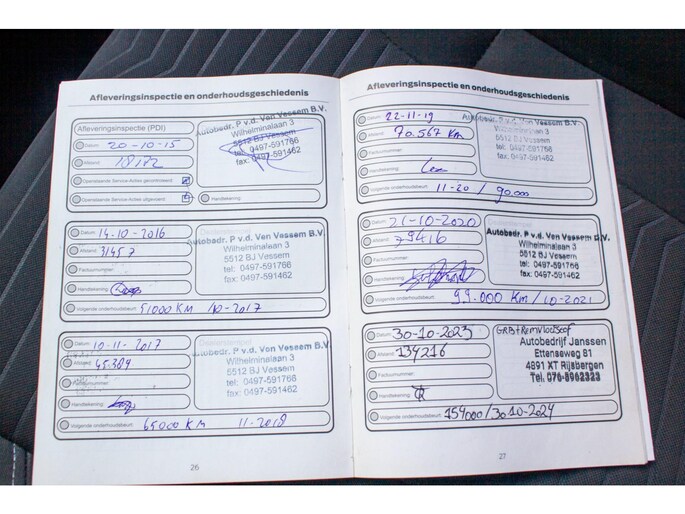 Afleveringsinspectie en onderhoudsgeschiedenis
Afleveringsinspectie (PDI)
Datum: 20-10-15
Afstand:
Openstaande Service-Acties gecontroleerd:
Openstaande Service-Acties uitgevoerd:
Autobedr. P v.d. Ven Vessem B.V.
Wilhelminalaan 3
5512 BJ Vessem
tel: 0497-591766
fax: 0497-591462
Handtekening:
Datum: 14-10-2016
Afstand: 31457
Factuurnummer:
Handtekening:
Volgende onderhoudsbeurt: 51000 KM 10-2017
Autobedr. P v.d. Ven Vessem B.V.
Wilhelminalaan 3
5512 BJ Vessem
tel: 0497-591766
fax: 0497-591462
Datum: 10-11-2017
Afstand: 45.389
Factuurnummer:
Handtekening:
Volgende onderhoudsbeurt: 65000 KM 11-2018
Autobedr. P v.d. Ven Vessem B.V.
Wilhelminalaan 3
5512 BJ Vessem
tel: 0497-591766
fax: 0497-591462
26
Afleveringsinspectie en onderhoudsgeschiedenis
Datum: 22-11-19
Afstand: 70.567 Km
Factuurnummer:
Handtekening:
Volgende onderhoudsbeurt: 11-20 / 90.000
Autobedr. P v.d. Ven Vessem B.V.
Wilhelminalaan 3
5512 BJ Vessem
tel: 0497-591766
fax: 0497-591462
Datum: 21-10-2020
Afstand: 79416
Factuurnummer:
Handtekening:
Volgende onderhoudsbeurt: 99.000 Km / 10-2021
Autobedr. P v.d. Ven Vessem B.V.
Wilhelminalaan 3
5512 BJ Vessem
tel: 0497-591766
fax: 0497-591462
Datum: 30-10-2023
Afstand: 134216
Factuurnummer:
Handtekening:
Volgende onderhoudsbeurt: 154000/30-10-2024
Autobedrijf Janssen
Ettenseweg 81
4891 XT Rijsbergen
Tel: 076-5962323
27